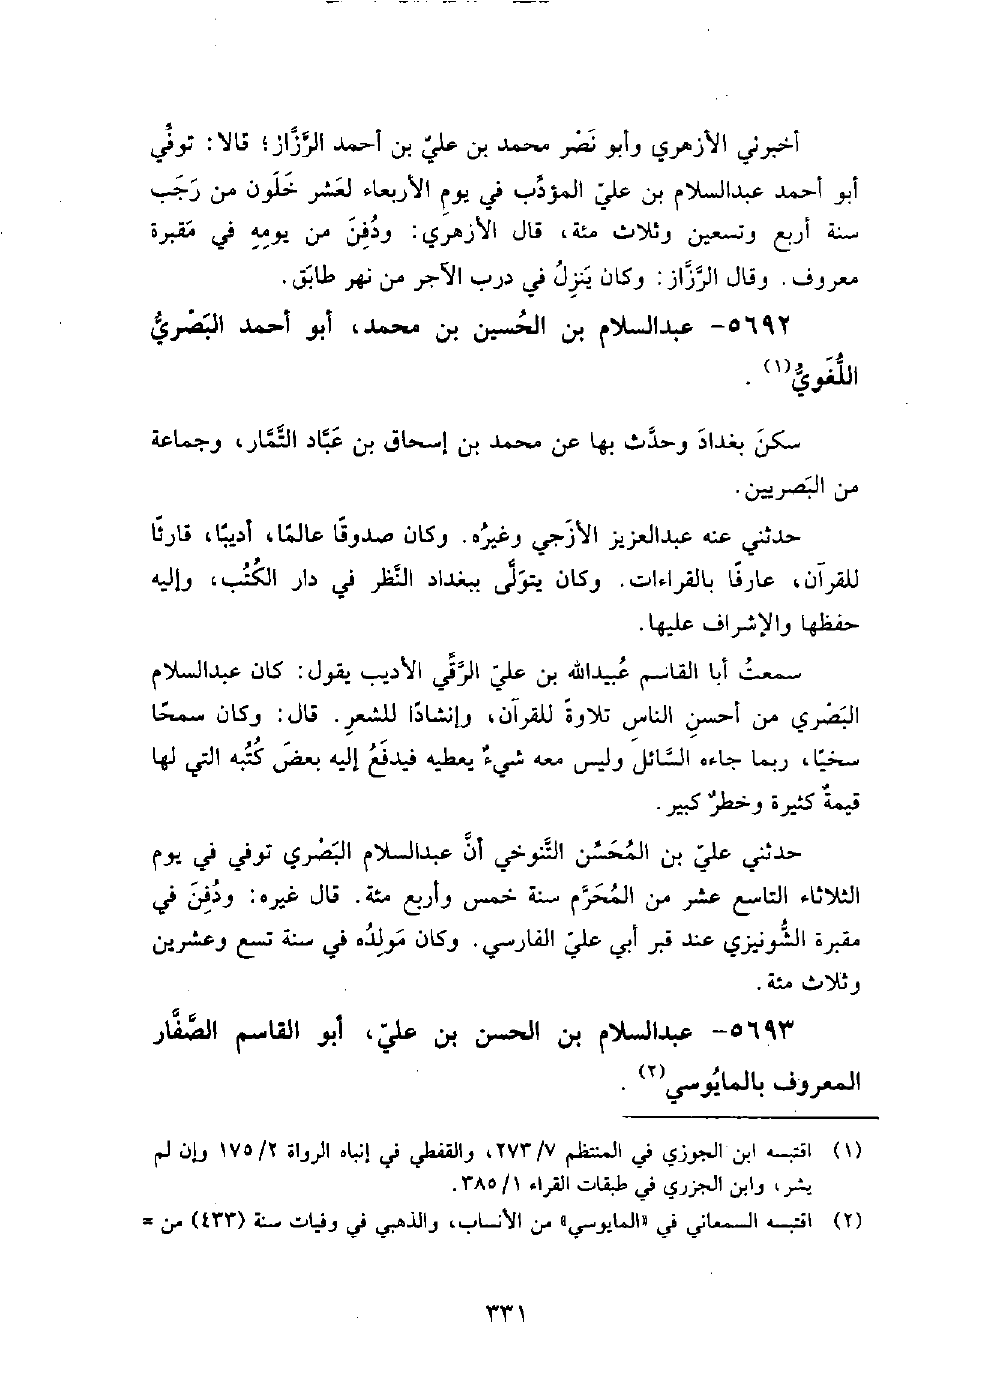 أخبرني الأزهري وأبو نَصْر محمد بن عليّ بن أحمد الرَّزَّاز؛ قالا: توفِّي
أبو أحمد عبدالسلام بن عليّ المؤدِّب في يومِ الأربعاء لعَشر خَلَون من رَجَب
سنة أربع وتسعين وثلاث مئة، قال الأزهري: ودُفِنَ من يومِهِ في مَقبرة
معروف. وقال الرَّزَّاز: وكان يَنزِلُ في درب الآجر من نهر طابَق.
٥٦٩٢- عبدالسلام بن الحُسين بن محمد، أبو أحمد البَصْريُّ
اللُّغَويُّ(١).
سكنَ بغدادَ وحدَّث بها عن محمد بن إسحاق بن عَبَّاد التَّمَّار، وجماعة
من البَصريين.
حدثني عنه عبدالعزيز الأزَجي وغيرُه. وكان صدوقًا عالمًا، أديبًا، قارئًا
للقرآن، عارفًا بالقراءات. وكان يتوَلَّى ببغداد النَّظر في دار الكُتُب، وإليه
حفظها والإشراف عليها.
سمعتُ أبا القاسم عُبيدالله بن عليّ الرَّقِّي الأديب يقول: كان عبدالسلام
البَصْري من أحسنِ الناسِ تلاوةً للقرآن، وإنشادًا للشعرِ. قال: وكان سمحًا
سخيًا، ربما جاءه السَّائل وليس معه شيءٌ يعطيه فيدفَعُ إليه بعضَ كُتُبه التي لها
قيمةٌ كثيرة وخطرٌ كبير.
حدثني عليّ بن المُحَسِّن التَّنوخي أنَّ عبدالسلام البَصْري توفي في يوم
الثلاثاء التاسع عشر من المُحَرَّم سنة خمس وأربع مئة. قال غيره: ودُفِنَ في
مقبرة الشُّونيزي عند قبر أبي عليّ الفارسي. وكان مَولِدُه في سنة تسع وعشرين
وثلاث مئة.
٥٦٩٣- عبدالسلام بن الحسن بن عليّ، أبو القاسم الصَّفَّار
المعروف بالمايُوسي(٢).
(١) اقتبسه ابن الجوزي في المنتظم ٧/ ٢٧٣، والقفطي في إنباه الرواة ٢/ ١٧٥ وإن لم
يشر، وابن الجزري في طبقات القراء ١/ ٣٨٥.
(٢) اقتبسه السمعاني في «المايوسي» من الأنساب، والذهبي في وفيات سنة (٤٣٣) من =
٣٣١